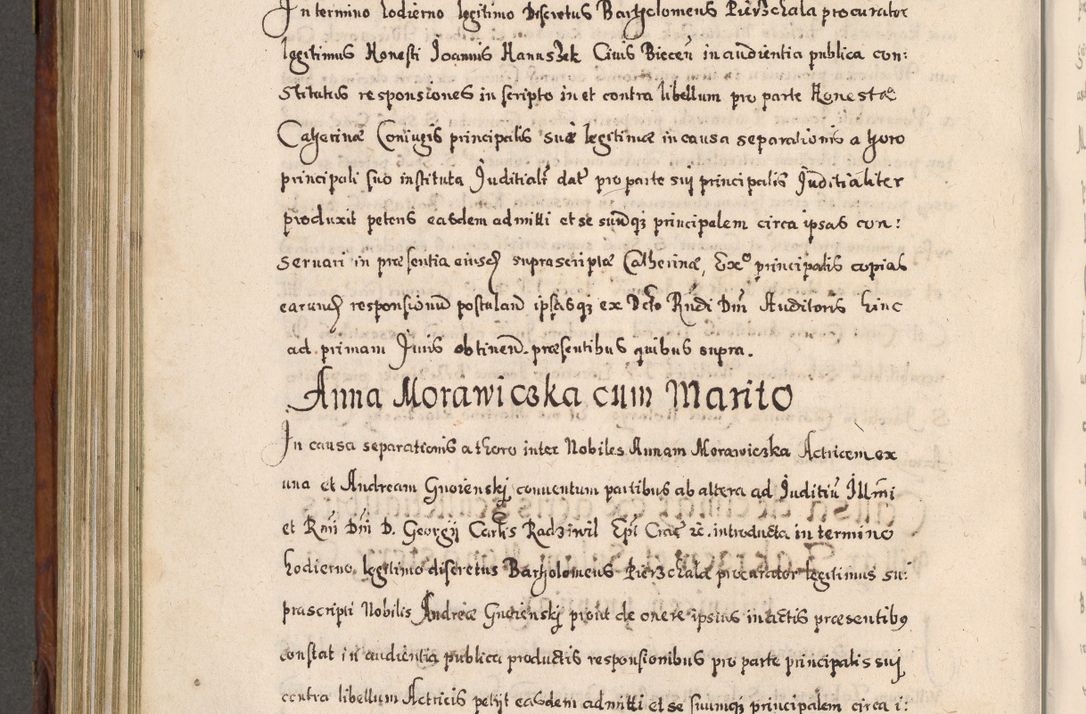 In termino hodierno legitimo Discretus Bartholomeus Pierzchala procurator
legitimus Honesti Joannis Hanuszek Civis Biecen̄ in audientia publica con:
stitutus responsiones in scripto in et contra libellum pro parte Honestæ
Catherinæ Coniugis principalis suæ legitimæ in causa separationis a thoro
principali suo instituta Juditialr̄ dat̄ pro parte sui principalis Juditialiter
produxit petens easdem admitti et se suumq3 principalem circa ipsas con:
servari in præsentia eiusd̄ suprascriptæ Catherinæ, Exº principalis copias
earund̄ responsionū postulan̄ ipsasq3 ex Dcto Rn̄di Dn̄i Auditoris hinc
ad primam Juris obtinen̄. præsentibus quibus supra.
Anna Morawiczka cum Marito
In causa separationis a thoro inter Nobiles Annam Morawiczka Actricem ex
una et Andream Gnoienskj conventum partibus ab altera ad Juditiū Illm̄i
et Rn̄i Dn̄i D. Georgij Carlis Radziwil Ep̄i Crac̄ rc. introducta in termino
hodierno legitimo discretus Bartholomeus Pierzchala procurator legitimus su:
prascripti Nobilis Andreæ Gnoienskj prout de onere ipsius in actis præsentibq
constat in audientia publica productis responsionibus pro parte principalis sui
contra libellum Actricis petijt easdem admitti et se suumq3 principalem circa i: